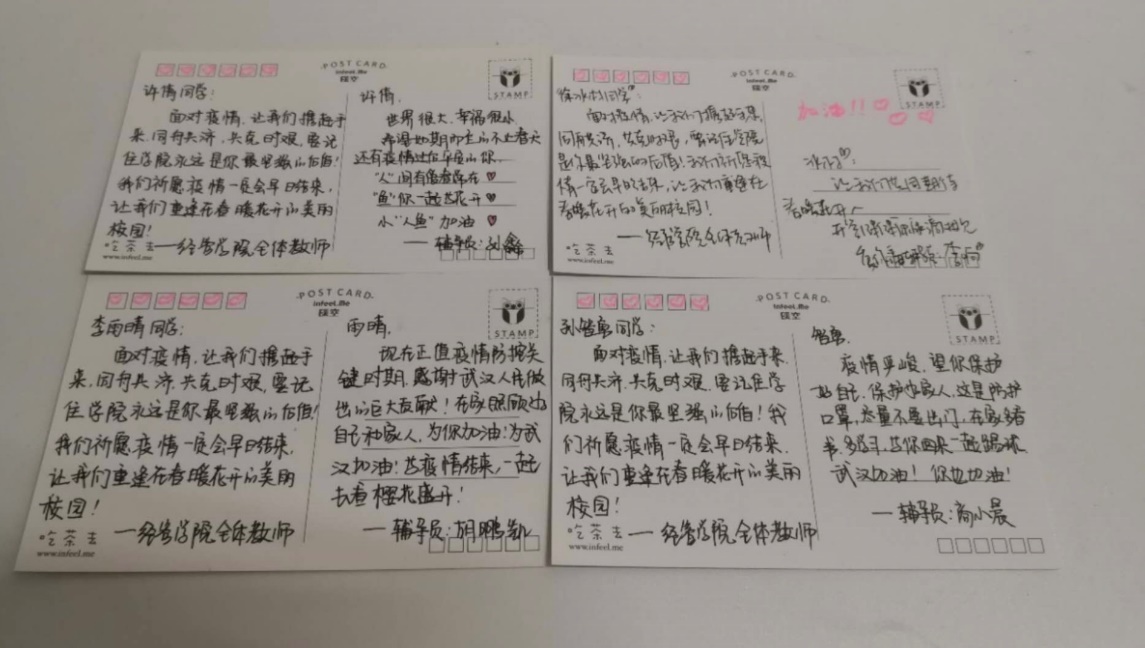 POST CARD
infeel.Me
STAMP
许倩同学:
面对疫情,让我们携起手
来,同舟共济,共克时艰,要记
住学院永远是你最坚强的后盾!
我们祈愿疫情一定会早日结束,
让我们重逢在春暖花开的美丽
校园!
——经管学院全体教师
吃茶去
www.infeel.me
许倩,
世界很大,幸福很小
还有疫情过后
"人"间有
"鱼"你一起
小"人鱼"加油
——辅导员:刘
POST CARD
infeel.Me
STAMP
同学:
面对疫情,让我们携起手来,
同舟共济,共克时艰,要记住学院
是你最坚强的后盾!我们祈愿疫
情一定会早日结束,让我们重逢在
春暖花开的美丽校园!
——经管学院全体教师
吃茶去
www.infeel.me
加油!!
让我们共同期待
春暖花开~
POST CARD
infeel.Me
STAMP
李雨晴同学:
面对疫情,让我们携起手
来,同舟共济,共克时艰,要记
住学院永远是你最坚强的后盾!
我们祈愿疫情一定会早日结束,
让我们重逢在春暖花开的美丽
校园!
——经管学院全体教师
吃茶去
www.infeel.me
雨晴,
现在正值疫情防控关
键时期,感谢武汉人民做
出的巨大贡献!在家照顾好
自己和家人,为你加油!为武
汉加油!等疫情结束,一起
去看樱花盛开!
——辅导员:胡鹏凯
POST CARD
infeel.Me
STAMP
同学:
面对疫情,让我们携起手来,
同舟共济,共克时艰,要记住学
院永远是你最坚强的后盾!我
们祈愿疫情一定会早日结束,
让我们重逢在春暖花开的美丽
校园!
——经管学院全体教师
吃茶去
www.infeel.me
疫情严峻,望你保护
好自己,保护好家人,
口罩,尽量不要出门,在家多看
书,多学习,等你回来一起踢球
武汉加油!你也加油!
——辅导员:商小晨